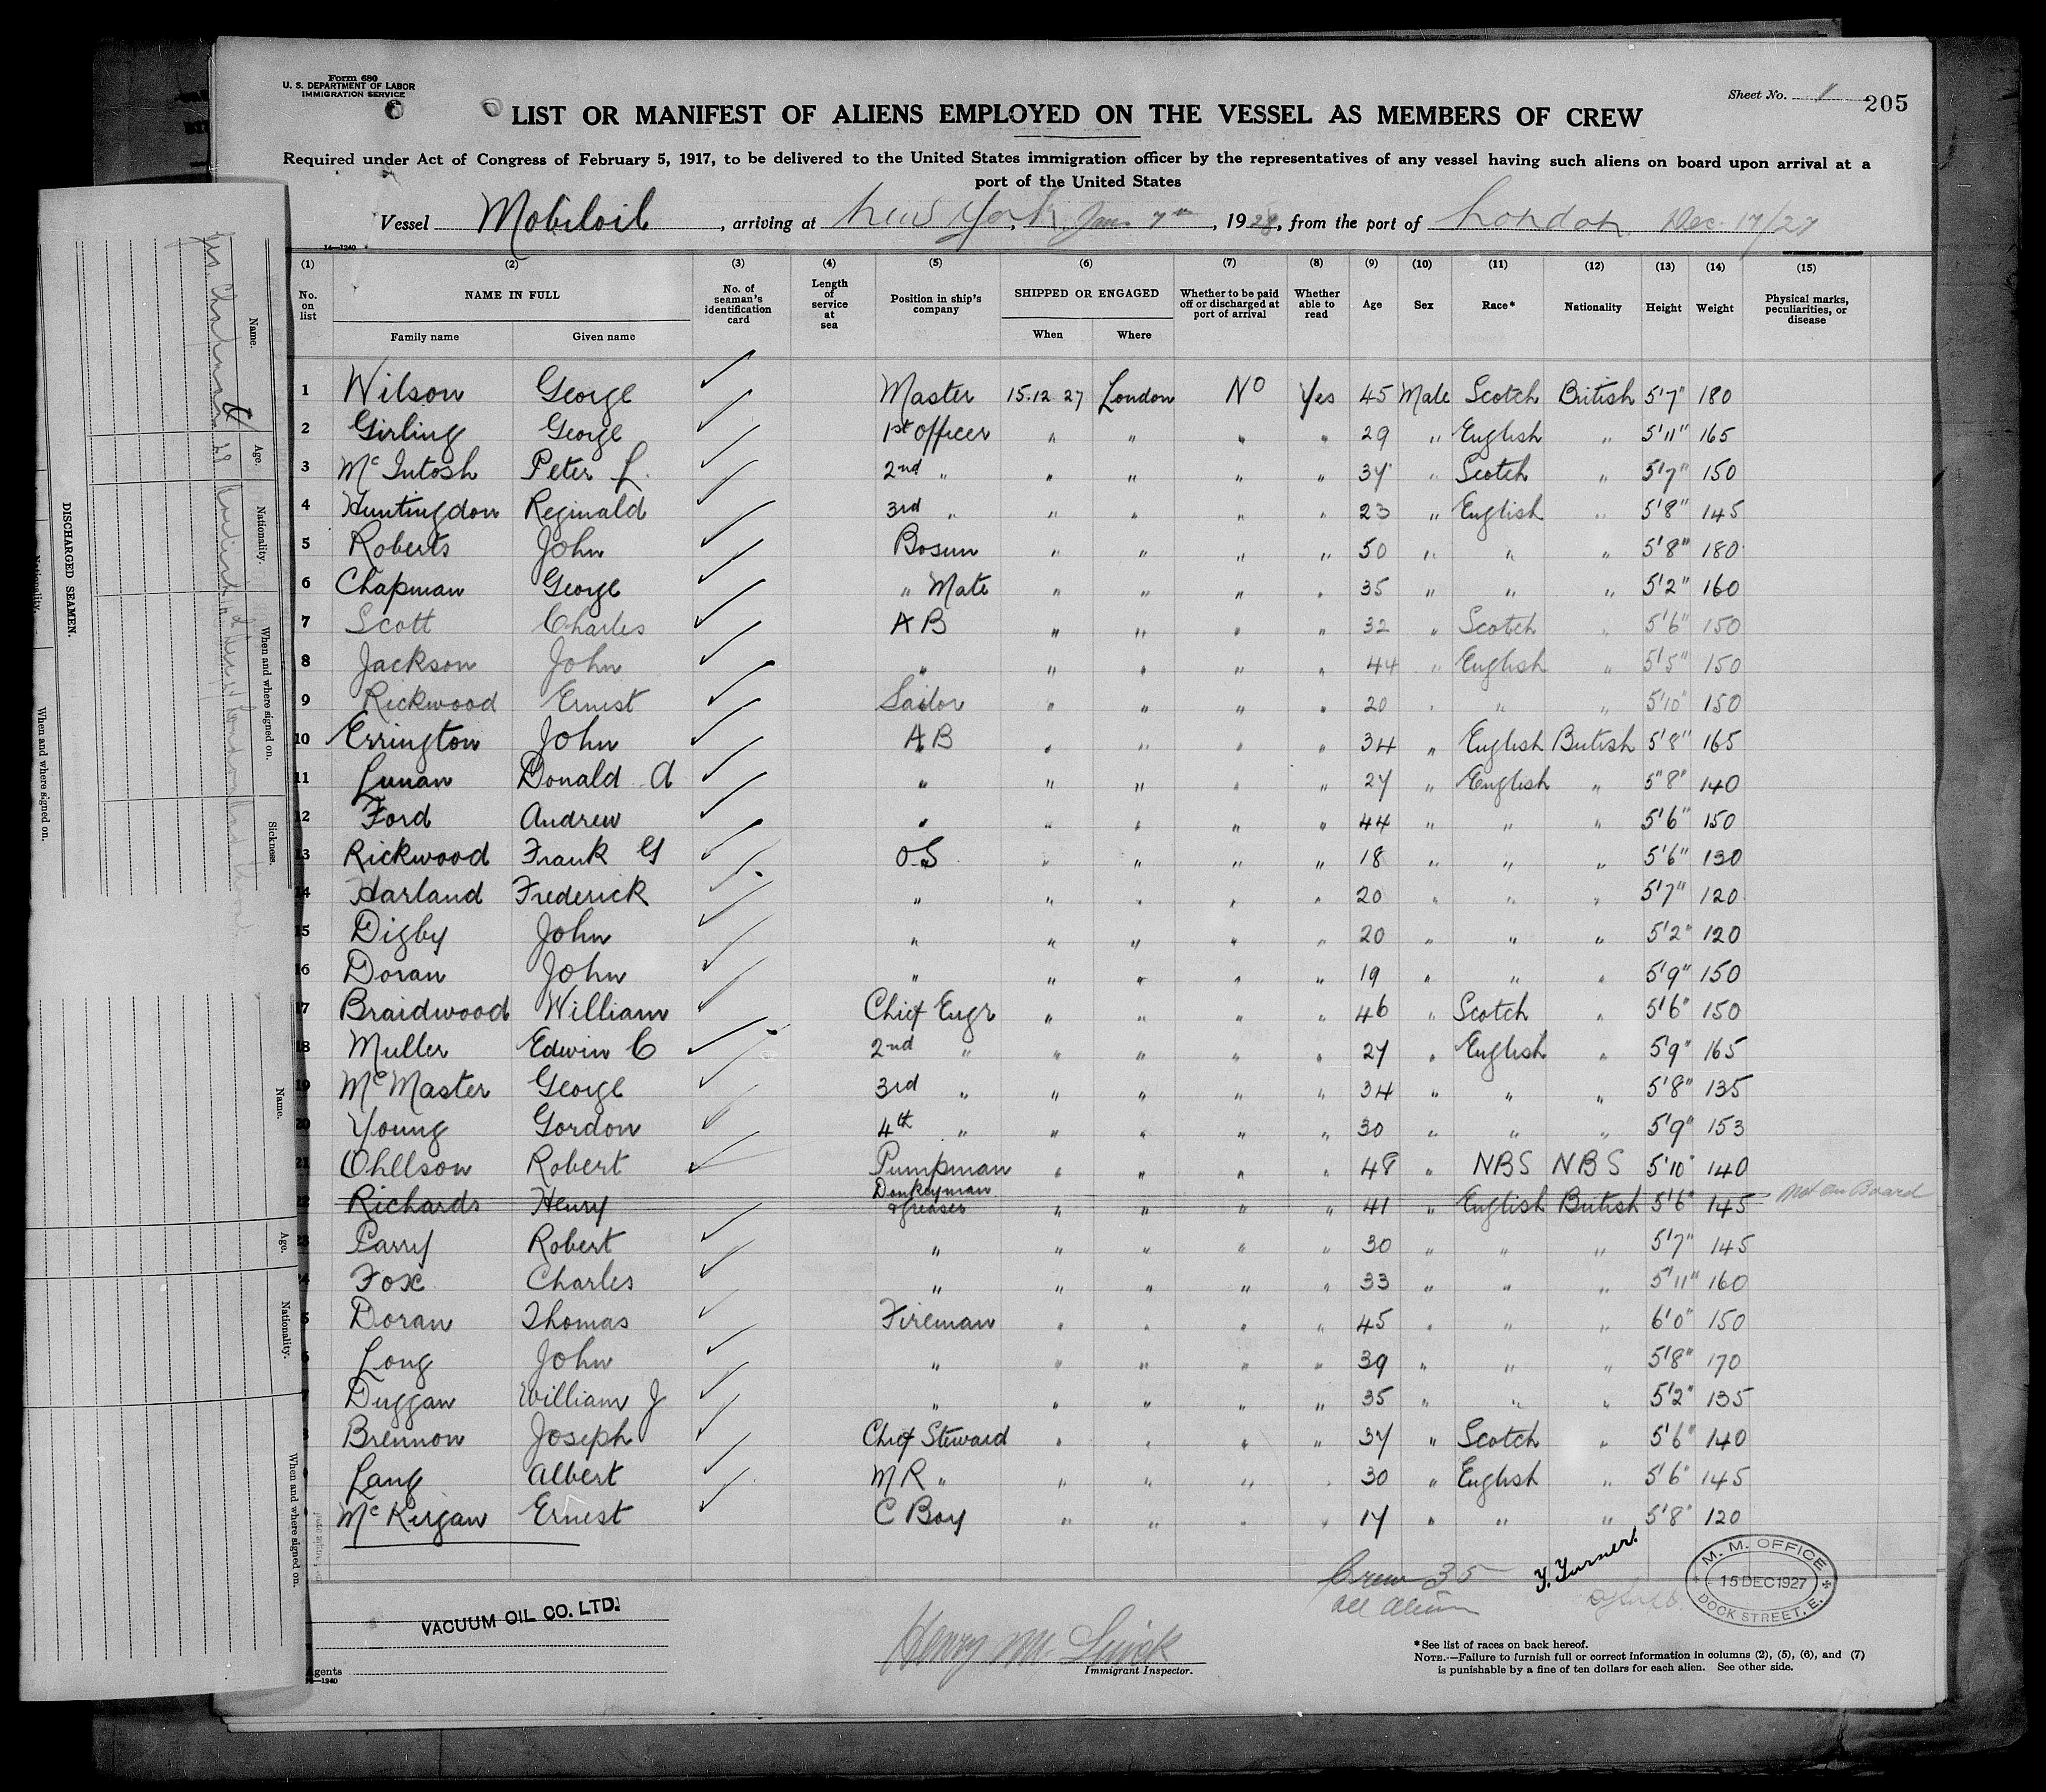 Form 680
U. S. DEPARTMENT OF LABOR
IMMIGRATION SERVICE
Sheet No. 1 205
LIST OR MANIFEST OF ALIENS EMPLOYED ON THE VESSEL AS MEMBERS OF CREW
Required under Act of Congress of February 5, 1917, to be delivered to the United States immigration officer by the representatives of any vessel having such aliens on board upon arrival at a
port of the United States
Vessel Mobiloil, arriving at New York, Jan 7th, 1928, from the port of London Dec. 17/27
14—1240
(1) (2) (3) (4) (5) (6) (7) (8) (9) (10) (11) (12) (13) (14) (15)
No. on list NAME IN FULL No. of seaman's identification card Length of service at sea Position in ship's company SHIPPED OR ENGAGED Whether to be paid off or discharged at port of arrival Whether able to read Age Sex Race* Nationality Height Weight Physical marks, peculiarities, or disease
Family name Given name When Where
1 Wilson George ✓ Master 15.12 27 London No Yes 45 Male Scotch British 5'7" 180
2 Girling George ✓ 1st Officer " " " " 29 " English " 5'11" 165
3 McIntosh Peter L. ✓ 2nd " " " " " 37 " Scotch " 5'7" 150
4 Huntingdon Reginald ✓ 3rd " " " " " 23 " English " 5'8" 145
5 Roberts John ✓ Bosun " " " " 50 " " " 5'8" 180
6 Chapman George ✓ " Mate " " " " 35 " " " 5'2" 160
7 Scott Charles ✓ AB " " " " 32 " Scotch " 5'6" 150
8 Jackson John ✓ " " " " " 44 " English " 5'5" 150
9 Rickwood Ernest ✓ Sailor " " " " 20 " " " 5'10" 150
10 Errington John ✓ AB " " " " 34 " English British 5'8" 165
11 Lunan Donald A ✓ " " " " " 27 " English " 5"8" 140
12 Ford Andrew ✓ " " " " " 44 " " " 5'6" 150
13 Rickwood Frank G ✓ O.S " " " " 18 " " " 5'6" 130
14 Harland Frederick ✓ " " " " " 20 " " " 5'7" 120
15 Digby John ✓ " " " " " 20 " " " 5'2" 120
16 Doran John ✓ " " " " " 19 " " " 5'9" 150
17 Braidwood William ✓ Chief Engr " " " " 46 " Scotch " 5'6" 150
18 Muller Edwin C ✓ 2nd " " " " " 27 " English " 5'9" 165
19 McMaster George ✓ 3rd " " " " " 34 " " " 5'8" 135
20 Young Gordon ✓ 4th " " " " " 30 " " " 5'9" 153
21 Ohllson Robert ✓ Pumpman " " " " 48 " NBS NBS 5'10" 140
22 Richards Henry Donkeyman & Greaser " " " " 41 " English British 5'6" 145 Not on Board
23 Parry Robert ✓ " " " " " 30 " " " 5'7" 145
4 Fox Charles ✓ " " " " " 33 " " " 5'11" 160
5 Doran Thomas ✓ Fireman " " " " 45 " " " 6'0" 150
6 Long John ✓ " " " " " 39 " " " 5'8" 170
7 Duggan William J ✓ " " " " " 35 " " " 5'2" 135
8 Brennon Joseph ✓ Chief Steward " " " " 37 " Scotch " 5'6" 140
9 Lang Albert ✓ M R " " " " " 30 " English " 5'6" 145
McKirgan Ernest ✓ C Boy " " " " 17 " " " 5'8" 120
Crew 35
all alien
Y. Turner
M. M. OFFICE
15 DEC 1927
DOCK STREET, E.
VACUUM OIL CO. LTD.
Agents
Henry M
Immigrant Inspector.
*See list of races on back hereof.
NOTE.—Failure to furnish full or correct information in columns (2), (5), (6), and (7)
is punishable by a fine of ten dollars for each alien. See other side.
DISCHARGED SEAMEN.
Name. Age. Nationality. When and where signed on. Sickness.
Nationality. When and where signed on.
Name. Age. Nationality. When and where signed on.